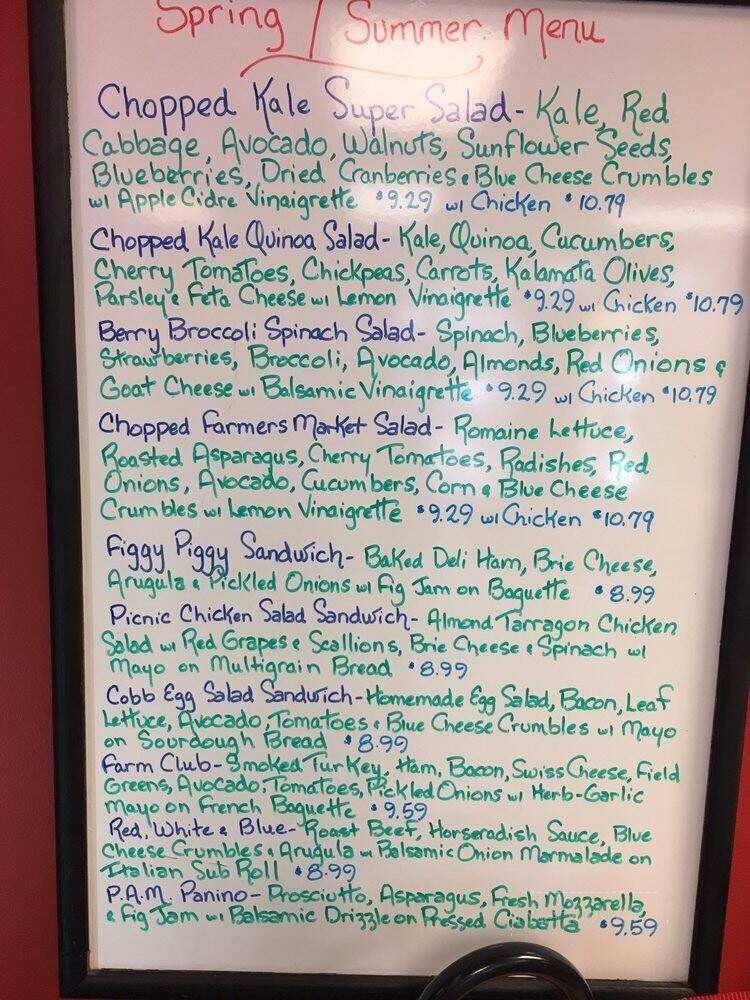 Spring / Summer Menu
Chopped Kale Super Salad - Kale, Red
Cabbage, Avocado, Walnuts, Sunflower Seeds,
Blueberries, Dried Cranberries & Blue Cheese Crumbles
w/ Apple Cidre Vinaigrette $9.29 w/ Chicken $10.79
Chopped Kale Quinoa Salad - Kale, Quinoa, Cucumbers,
Cherry Tomatoes, Chickpeas, Carrots, Kalamata Olives,
Parsley & Feta Cheese w/ Lemon Vinaigrette $9.29 w/ Chicken $10.79
Berry Broccoli Spinach Salad - Spinach, Blueberries,
Strawberries, Broccoli, Avocado, Almonds, Red Onions &
Goat Cheese w/ Balsamic Vinaigrette $9.29 w/ Chicken $10.79
Chopped Farmers Market Salad - Romaine Lettuce,
Roasted Asparagus, Cherry Tomatoes, Radishes, Red
Onions, Avocado, Cucumbers, Corn & Blue Cheese
Crumbles w/ Lemon Vinaigrette $9.29 w/ Chicken $10.79
Figgy Piggy Sandwich - Baked Deli Ham, Brie Cheese,
Arugula & Pickled Onions w/ Fig Jam on Baguette $8.99
Picnic Chicken Salad Sandwich - Almond Tarragon Chicken
Salad w/ Red Grapes & Scallions, Brie Cheese & Spinach w/
Mayo on Multigrain Bread $8.99
Cobb Egg Salad Sandwich - Homemade Egg Salad, Bacon, Leaf
Lettuce, Avocado, Tomatoes & Blue Cheese Crumbles w/ Mayo
on Sourdough Bread $8.99
Farm Club - Smoked Turkey, Ham, Bacon, Swiss Cheese, Field
Greens, Avocado, Tomatoes, Pickled Onions w/ Herb-Garlic
Mayo on French Baguette $9.59
Red, White & Blue - Roast Beef, Horseradish Sauce, Blue
Cheese Crumbles & Arugula w/ Balsamic Onion Marmalade on
Italian Sub Roll $8.99
P.A.M. Panino - Prosciutto, Asparagus, Fresh Mozzarella,
& Fig Jam w/ Balsamic Drizzle on Pressed Ciabatta $9.59